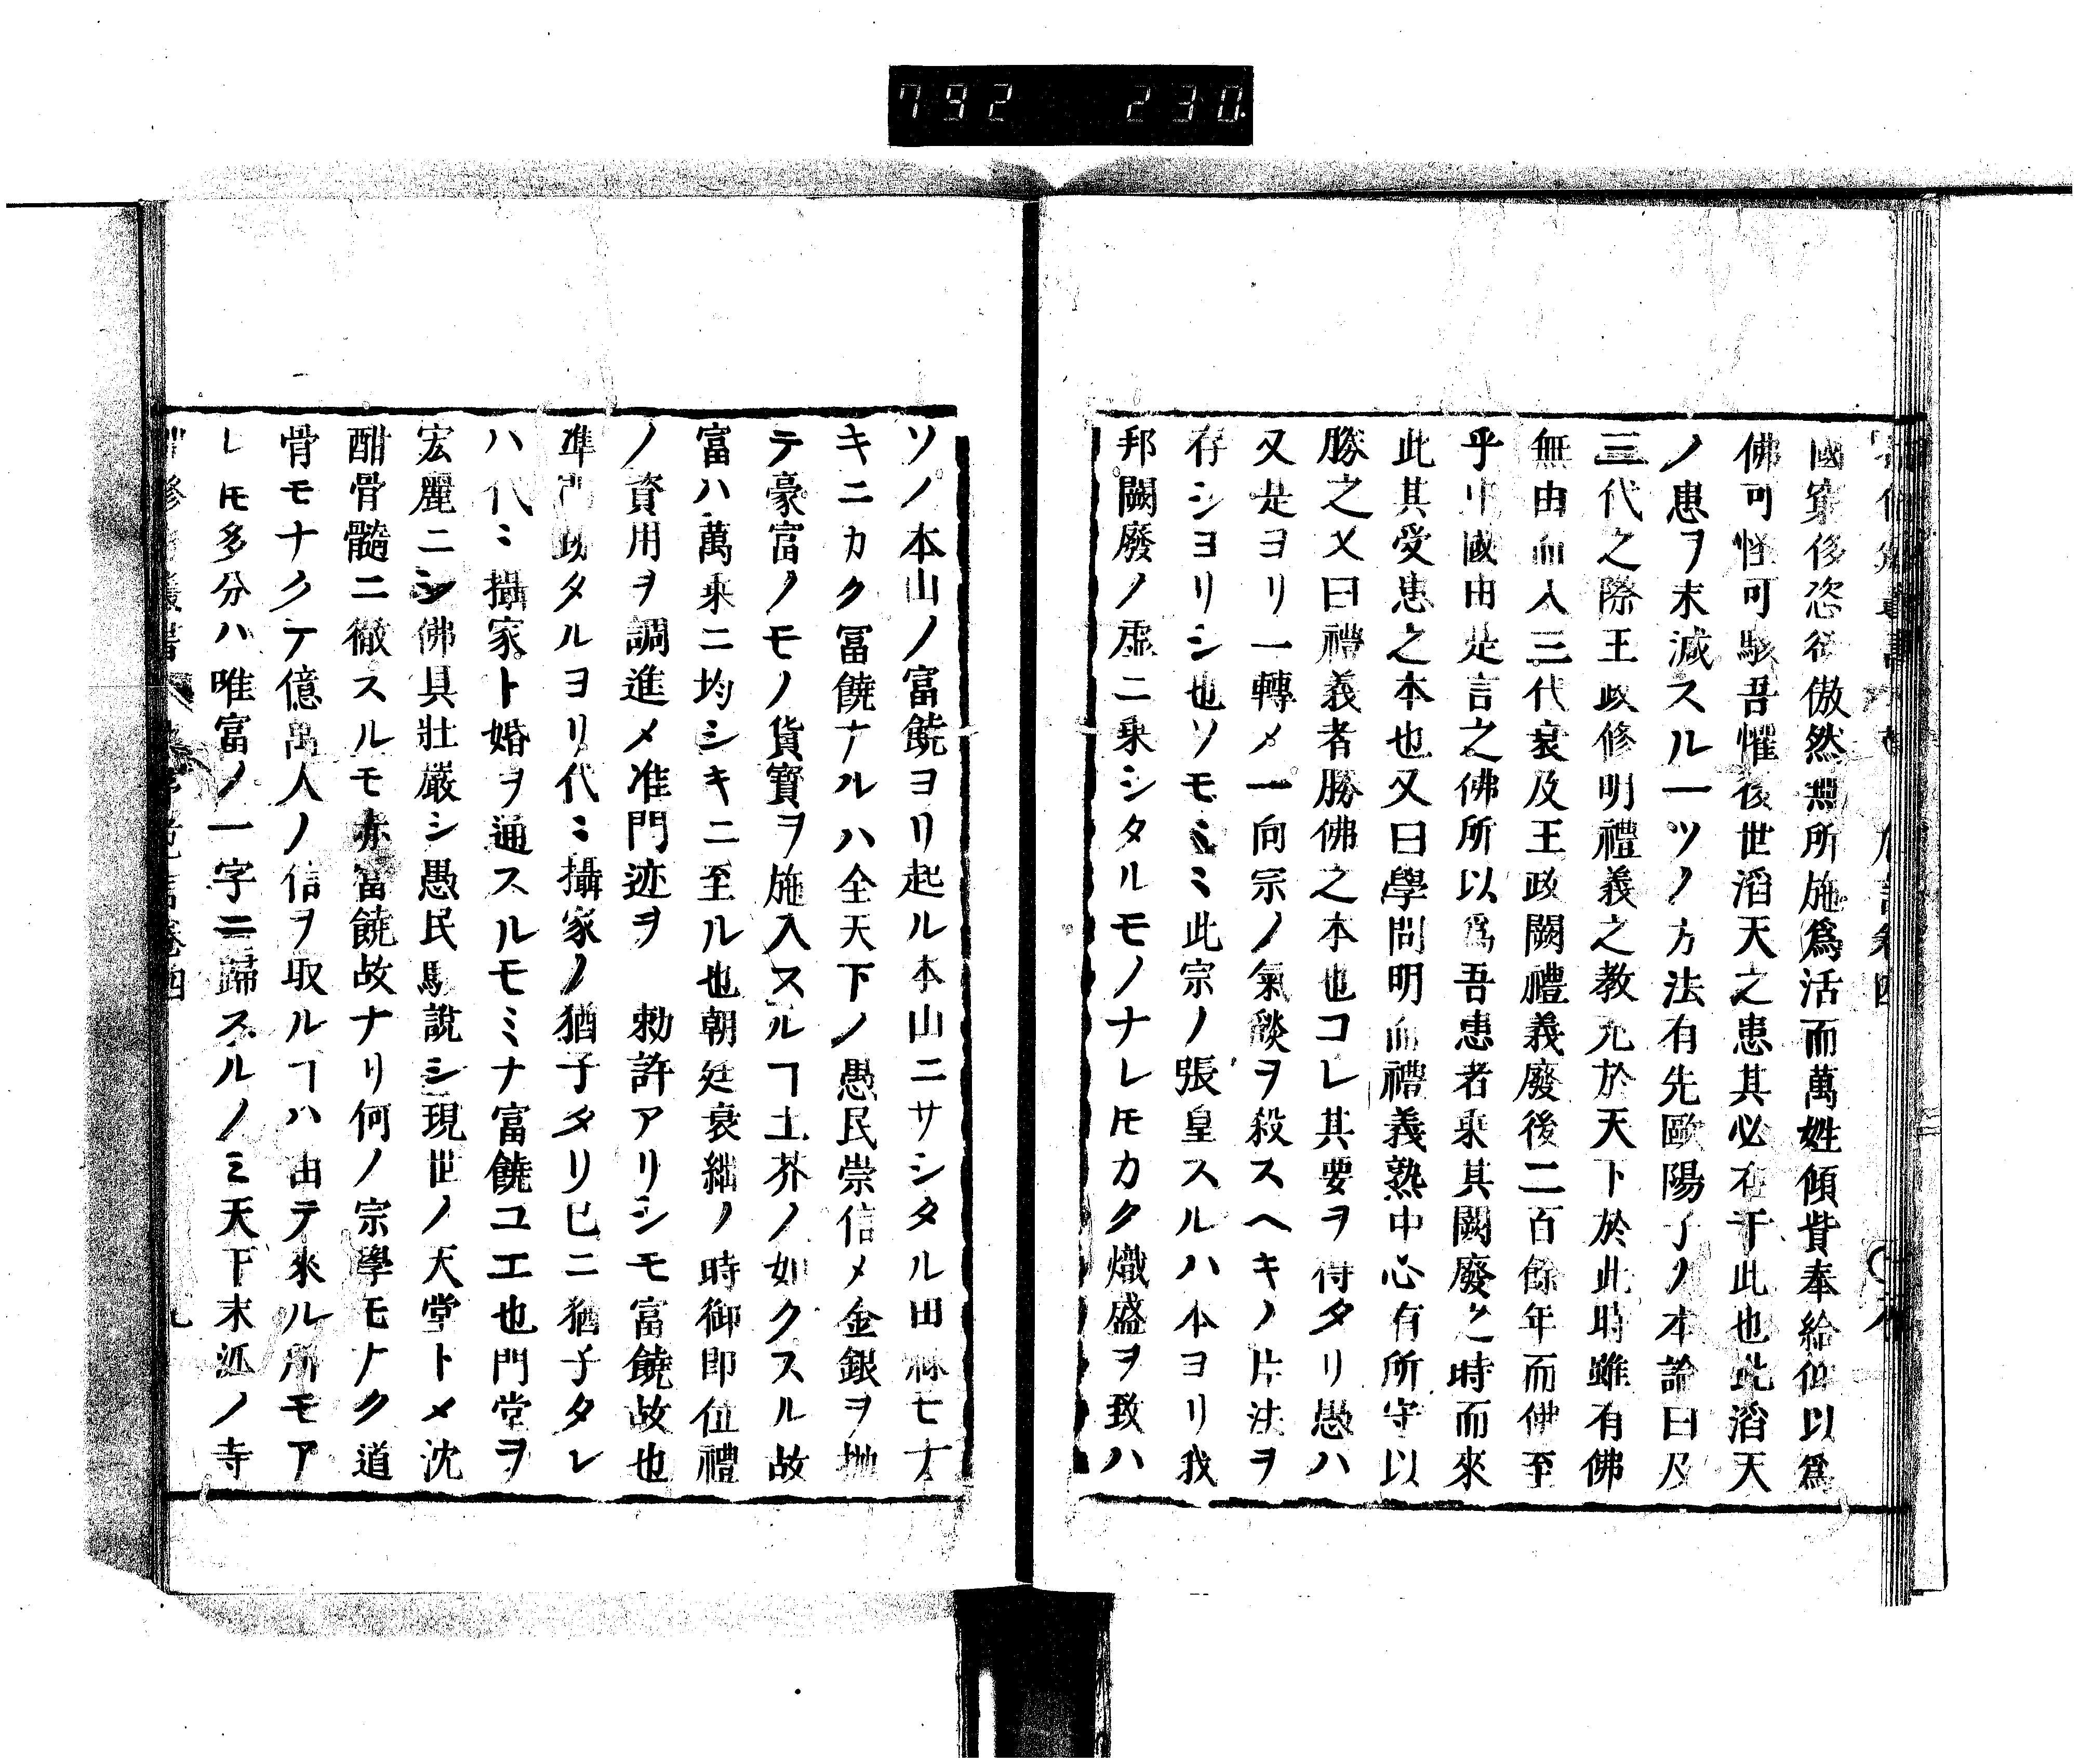 792 230
國窮侈恣欲傲然無所施爲活而萬姓傾貲奉給仰以爲
佛可怪可駭吾懼後世滔天之患其必在于此也此滔天
ノ患ヲ未滅スル一ツノ方法有先歐陽子ノ本論曰及
三代之際王政修明禮義之教充於天下於此時雖有佛
無由而入三代衰及王政闕禮義廢後二百餘年而佛至
乎中國由是言之佛所以爲吾患者乘其闕廢之時而來
此其受患之本也又曰學問明而禮義熟中心有所守以
勝之又曰禮義者勝佛之本也コレ其要ヲ得タリ愚ハ
又是ヨリ一轉メ一向宗ノ氣燄ヲ殺スヘキノ片法ヲ
存シヨリシ也ソモミミ此宗ノ張皇スルハ本ヨリ我
邦闕廢ノ虛ニ乘シタルモノナレ𪜈カク熾盛ヲ致ハ
ソノ本山ノ富饒ヨリ起ル本山ニサシタル田祿モナ
キニカク冨饒ナルハ全天下ノ愚民崇信メ金銀ヲ抛
テ豪富ノモノ貨寶ヲ施入スルヿ土芥ノ如クスル故
富ハ萬乘ニ均シキニ至ル也朝廷衰絀ノ時御即位禮
ノ資用ヲ調進メ准門迹ヲ 勅許アリシモ富饒故也
準門跡タルヨリ代ミ攝家ノ猶子タリ已ニ猶子タレ
ハ代ミ攝家ト婚ヲ通スルモミナ富饒ユエ也門堂ヲ
宏麗ニシ佛具壯嚴シ愚民駭說シ現世ノ天堂トメ沈
酣骨髓ニ徹スルモ亦富饒故ナリ何ノ宗學モナク道
骨モナクテ億萬人ノ信ヲ取ルヿハ由テ來ル所モア
レ𪜈多分ハ唯富ノ一字ニ歸スルノミ天下末派ノ寺